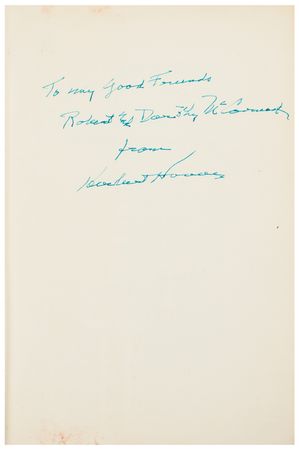 To my Good Friends
Robert & Dorothy McCormick
from
Herbert Hoover